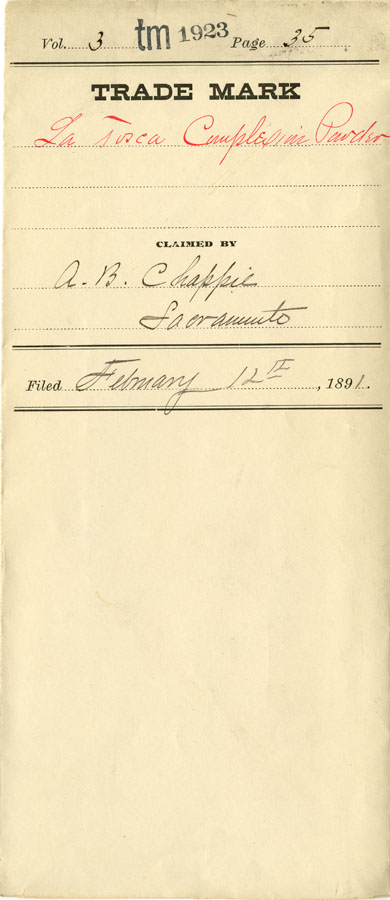 Vol. 3 tm 1923 Page 35
TRADE MARK
La Tosca Complexion Powder
CLAIMED BY
A. B. Chappie
Sacramento
Filed February 12th, 1891.